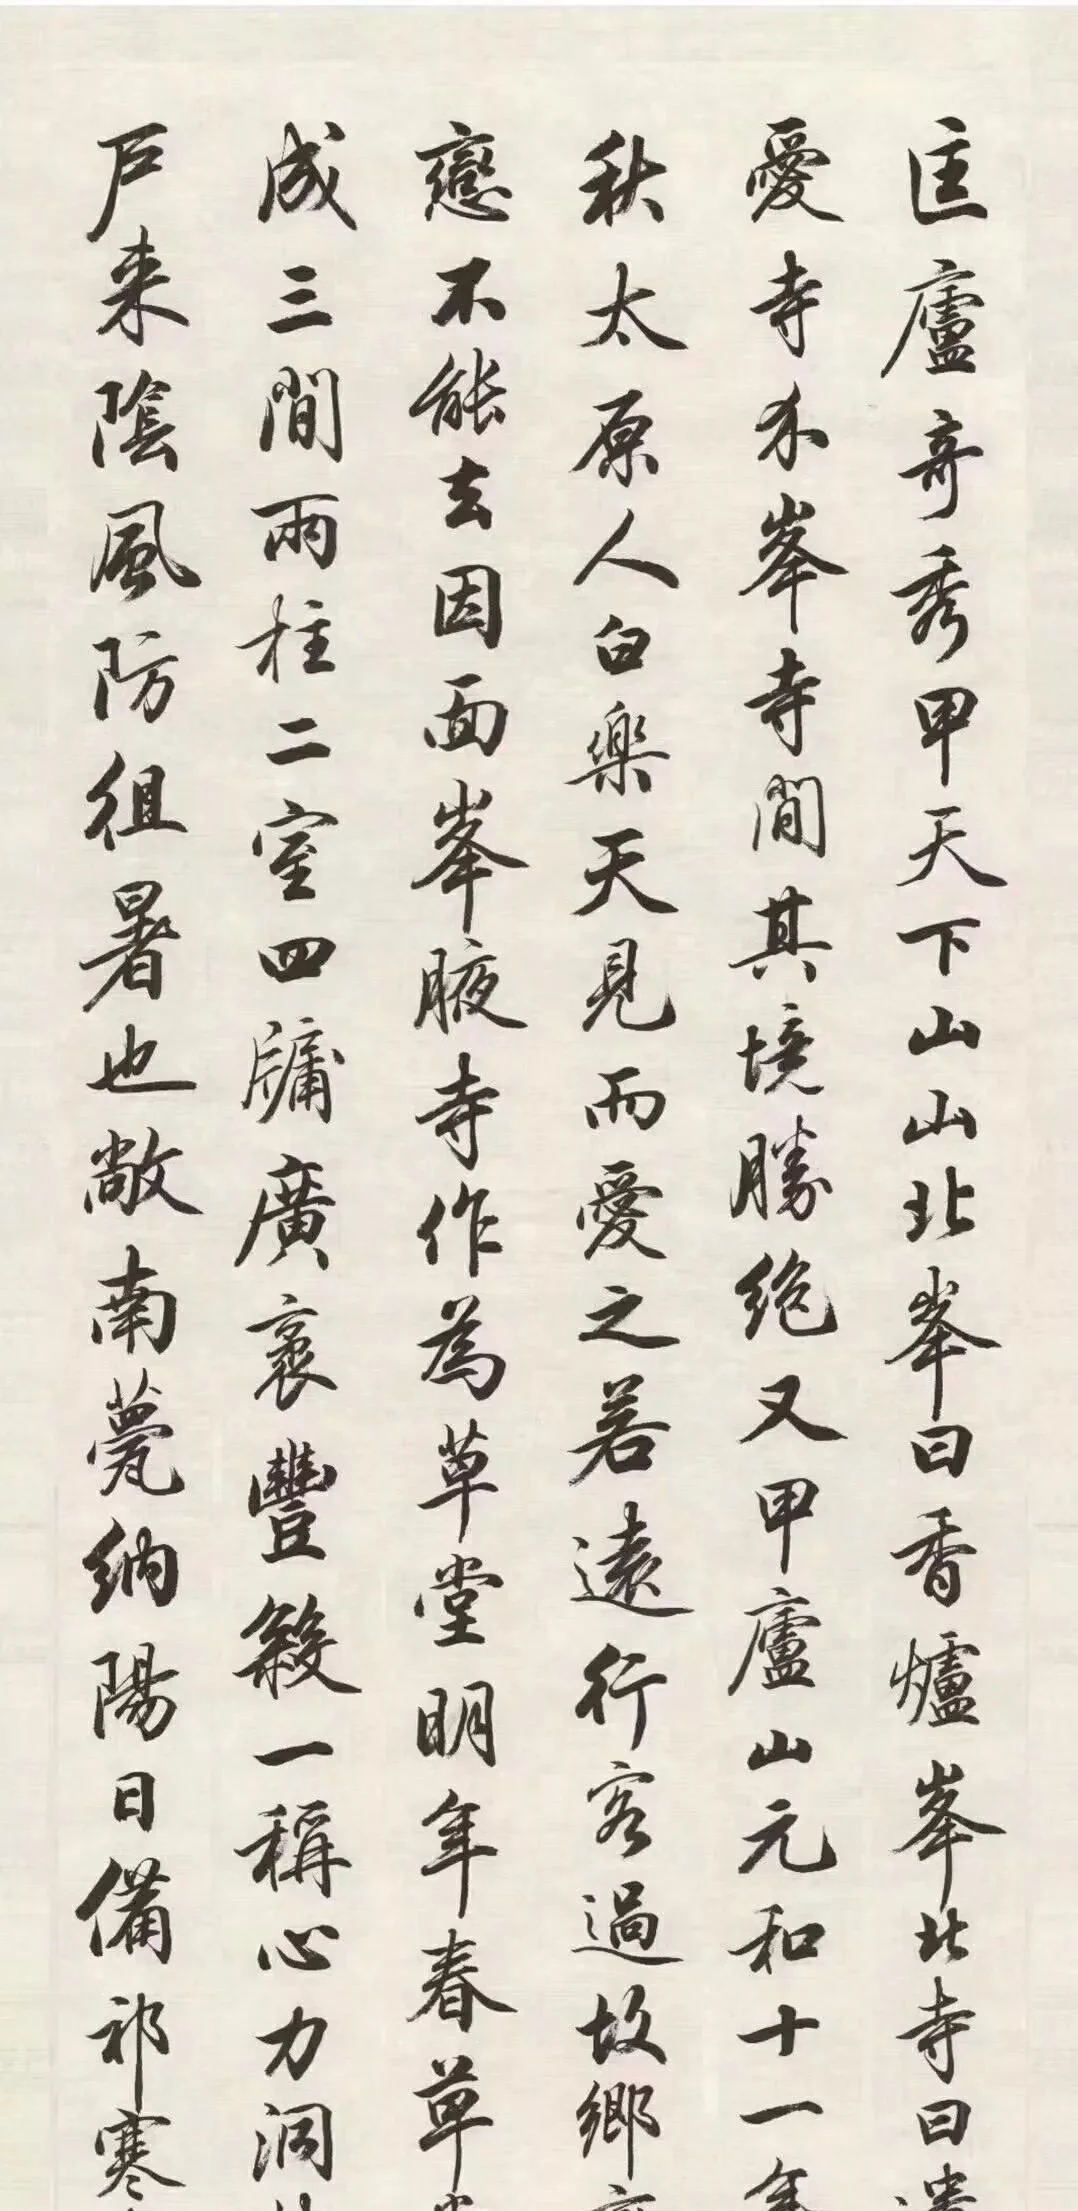 匡廬奇秀甲天下山山北峯曰香爐峯北寺曰遺
愛寺介峯寺間其境勝絶又甲廬山元和十一年
秋太原人白樂天見而愛之若遠行客過故鄉
戀不能去因面峯腋寺作為草堂明年春草堂
成三間兩柱二室四牖廣袤豐殺一稱心力洞
戶来陰風防徂暑也敞南甍納陽日備祁寒